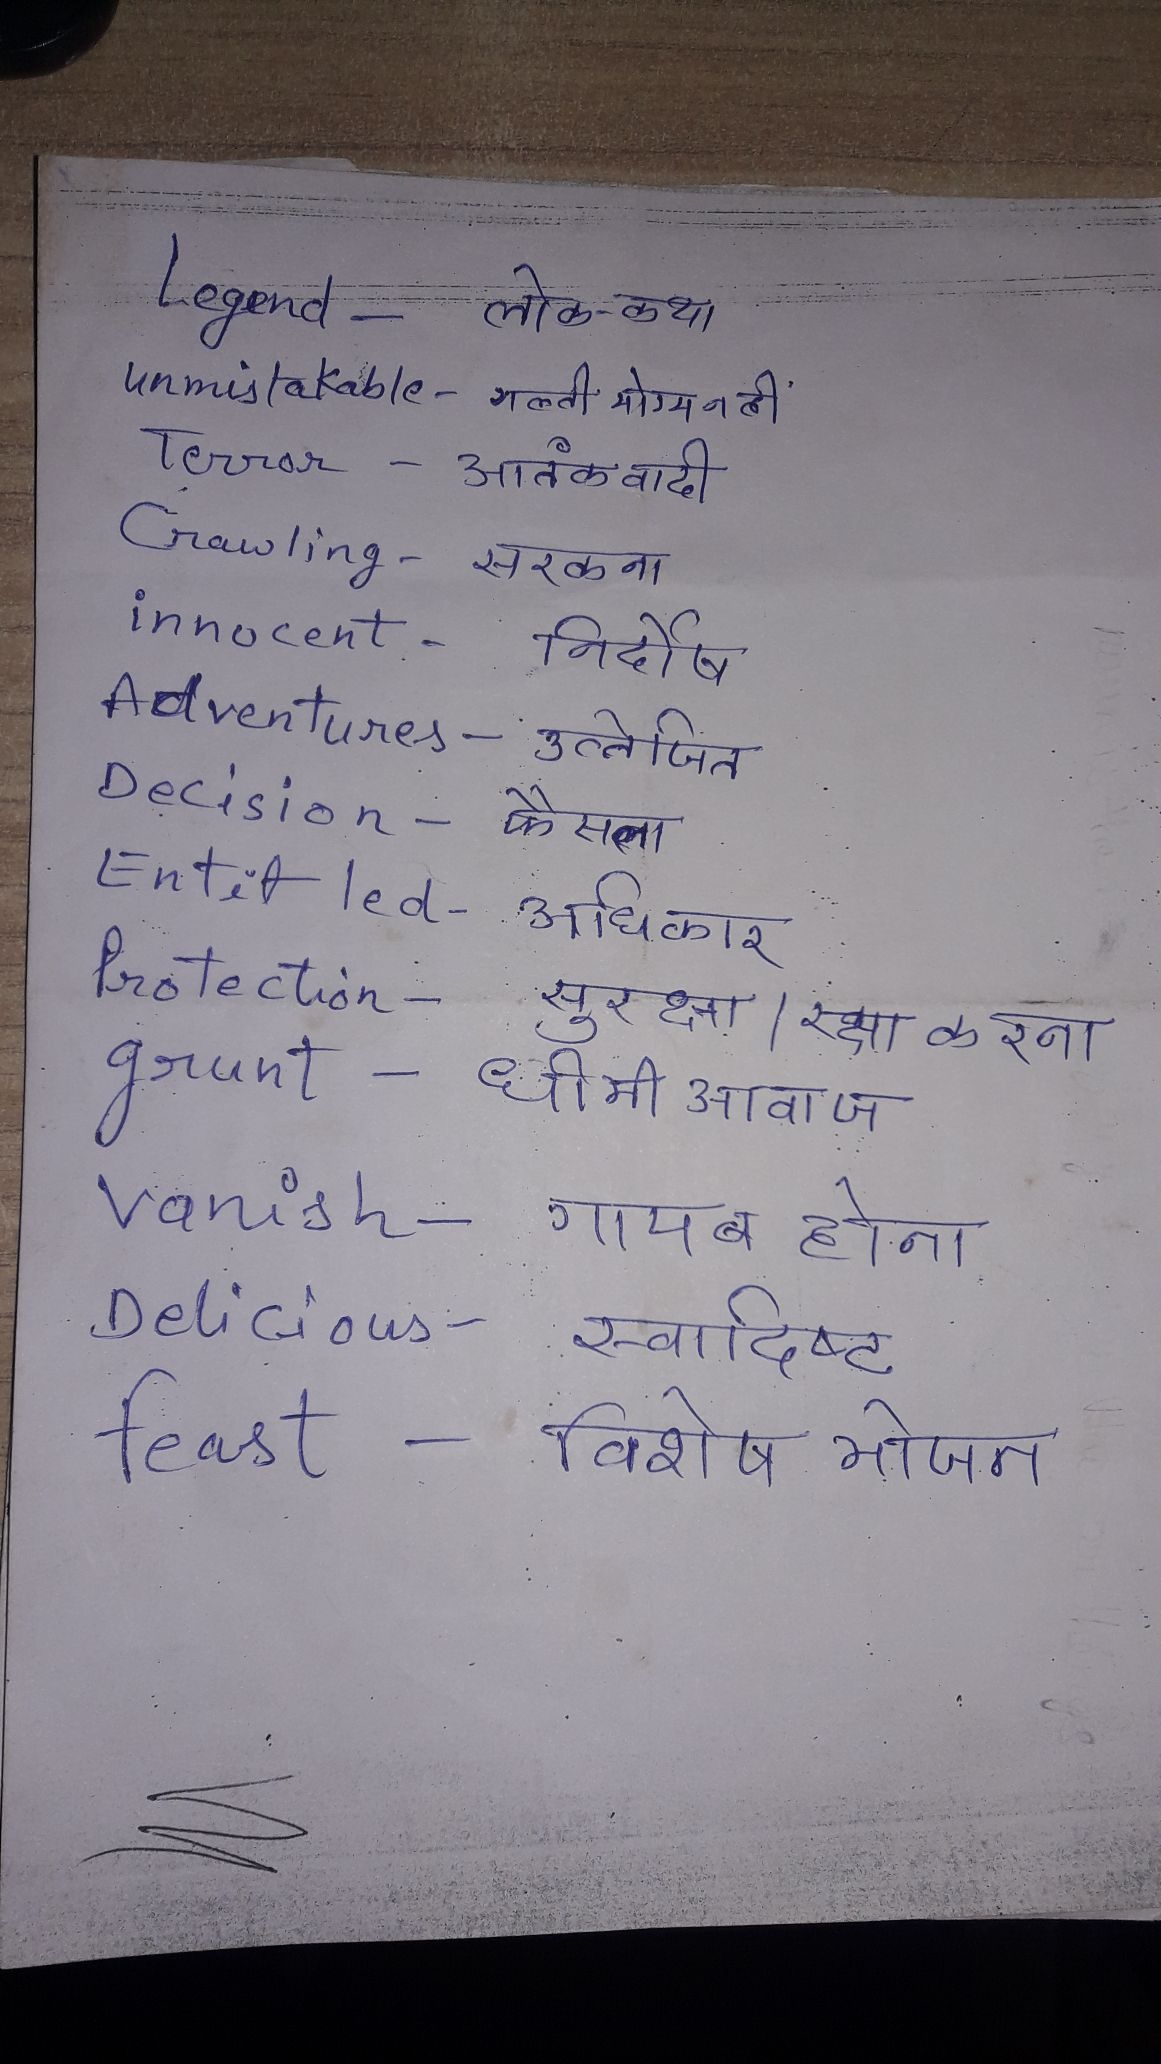 Legend - लोक-कथा
unmistakable - गल्ती योग्य नहीं
Terror - आतंकवादी
Crawling - सरकना
innocent - निर्दोष
Adventures - उत्तेजित
Decision - फैसला
Entitled - अधिकार
Protection - सुरक्षा / रक्षा करना
grunt - धीमी आवाज
Vanish - गायब होना
Delicious - स्वादिष्ट
feast - विशेष भोजन